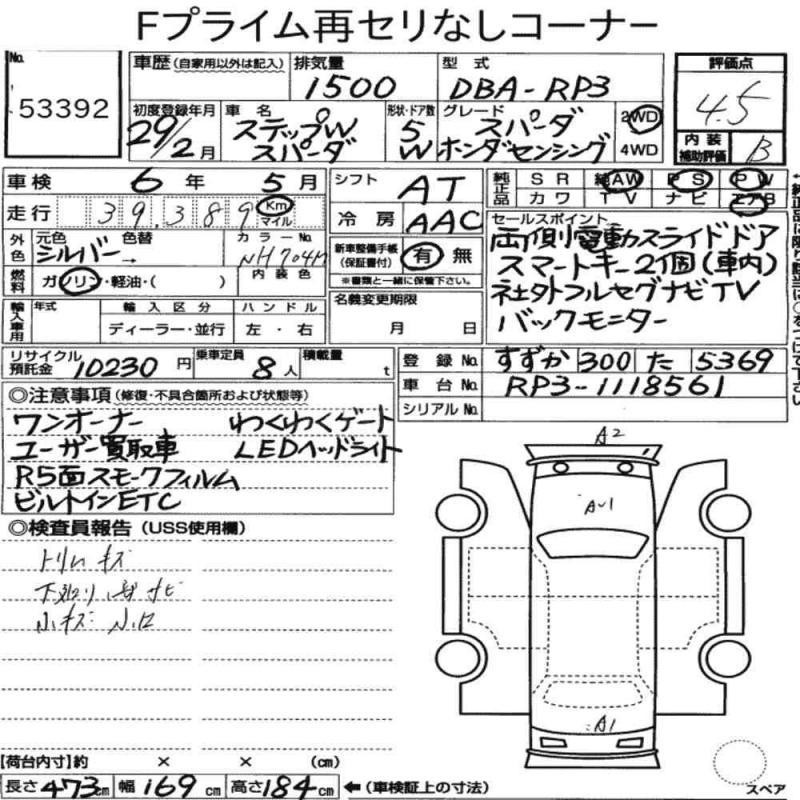 Fプライム再セリなしコーナー
No. 53392
車歴 (自家用以外は記入) 排気量 1500 型式 DBA-RP3
評価点 4.5
初度登録年月 29/2月 車名 ステップW スパーダ 形状・ドア数 5 W グレード スパーダ ホンダセンシング 2WD 4WD
内装補助評価 B
車検 6年 5月 シフト AT
純正品 SR 純AW PS PW
カワ TV ナビ エアB
走行 39,389 Km マイル 冷房 AAC
外色 元色 シルバー 色替 → カラーNo. NH704M 内装色
新車整備手帳 (保証書付) 有 無
※書類と一緒に保管下さい。
セールスポイント
両側電動スライドドア
スマートキー2個(車内)
社外フルセグナビTV
バックモニター
燃料 ガソリン・軽油・( )
名義変更期限 月 日
輸入車用 年式 輸入区分 ハンドル
ディーラー・並行 左・右
リサイクル預託金 10230円 乗車定員 8人 積載量 t
登録No. すずか 300 た 5369
車台No. RP3-1118561
シリアルNo.
◎注意事項 (修復・不具合箇所および状態等)
ワンオーナー わくわくゲート
ユーザー買取車 LEDヘッドライト
R5面スモークフィルム
ビルトインETC
◎検査員報告 (USS使用欄)
トリムキズ
小キズ 小凹
A2
A1
A1
【荷台内寸】約 × × (cm)
長さ 473cm 幅 169cm 高さ 184cm ← (車検証上の寸法)
スペア